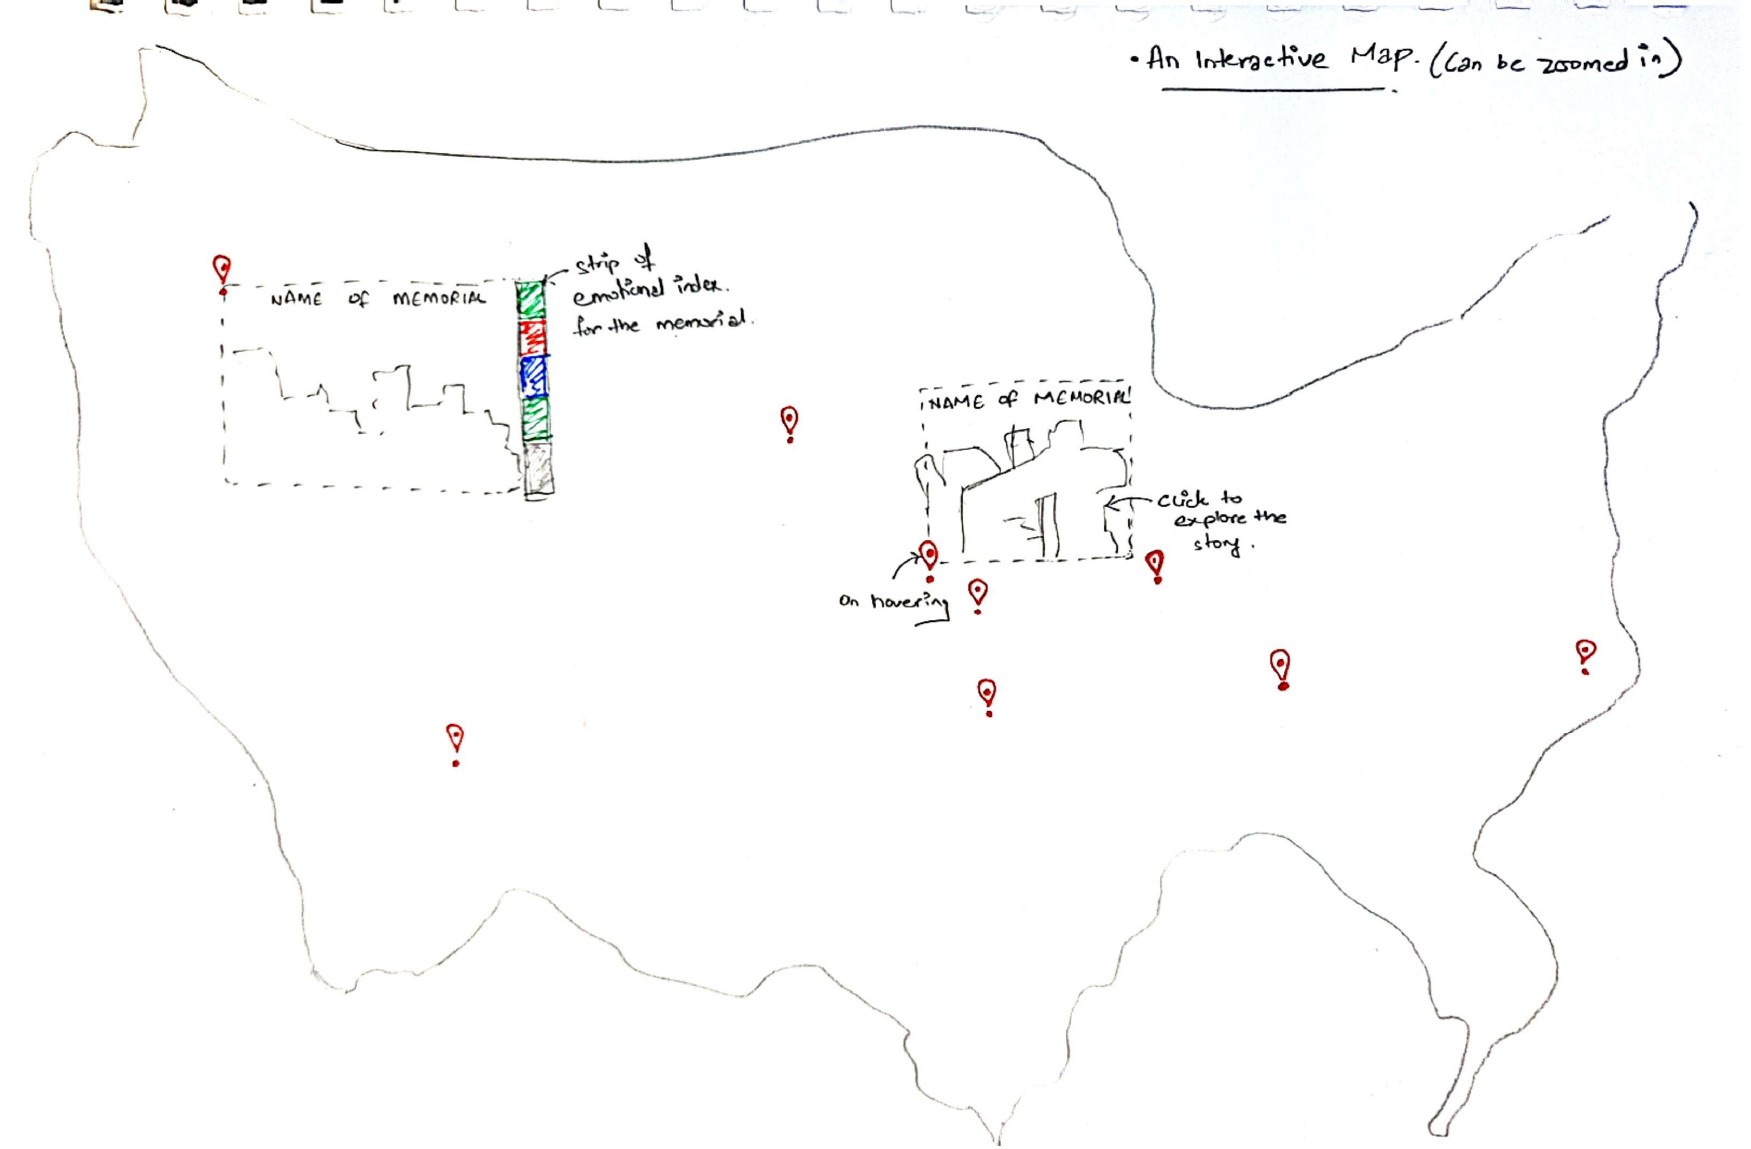 • An Interactive Map. (Can be zoomed in)
NAME OF MEMORIAL
strip of
emotional index.
for the memorial.
NAME OF MEMORIAL
click to
explore the
story.
On hovering